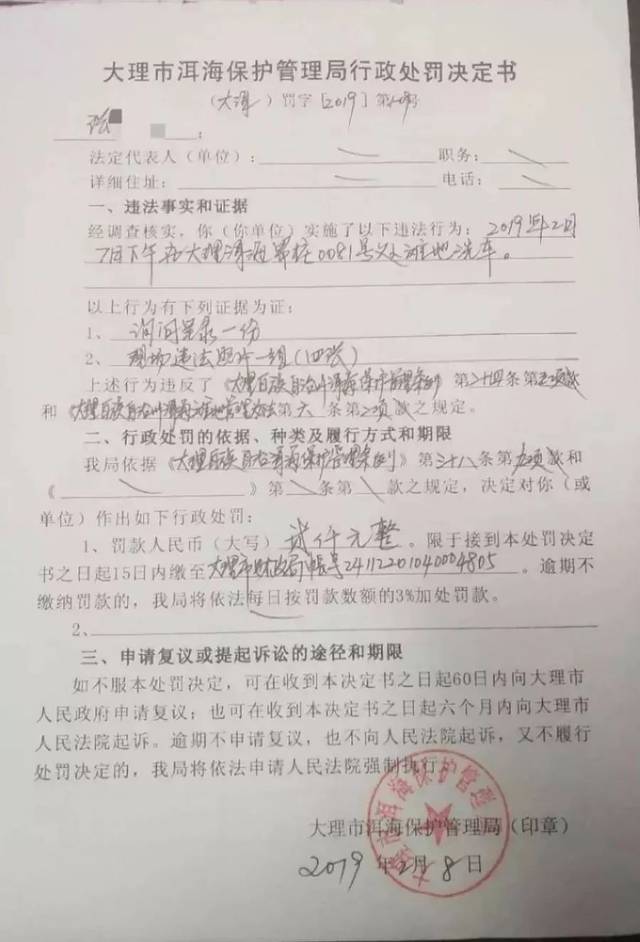 大理市洱海保护管理局行政处罚决定书
(大洱)罚字[2019]第 号
张 :
法定代表人(单位): 职务:
详细住址: 电话:
一、违法事实和证据
经调查核实,你(你单位)实施了以下违法行为:2019年2月
7日下午在大理洱海界桩0081号处滩地洗车。
以上行为有下列证据为证:
1、询问笔录一份
2、现场违法照片一组(四张)
上述行为违反了《大理白族自治州洱海保护管理条例》第二十四条第五项款
和《大理白族自治州洱海滩地管理办法》第六条第2项款之规定。
二、行政处罚的依据、种类及履行方式和期限
我局依据《大理白族自治州洱海保护管理条例》第三十八条第五项款和
《 》第 条第 款之规定,决定对你(或
单位)作出如下行政处罚:
1、罚款人民币(大写)贰仟元整。限于接到本处罚决定
书之日起15日内缴至大理市财政局帐号24112201040004805。逾期不
缴纳罚款的,我局将依法每日按罚款数额的3%加处罚款。
2、
三、申请复议或提起诉讼的途径和期限
如不服本处罚决定,可在收到本决定书之日起60日内向大理市
人民政府申请复议;也可在收到本决定书之日起六个月内向大理市
人民法院起诉。逾期不申请复议,也不向人民法院起诉,又不履行
处罚决定的,我局将依法申请人民法院强制执行。
大理市洱海保护管理局
大理市洱海保护管理局(印章)
2019年2月8日